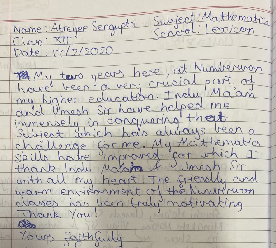 Name: Atreyee Sengupta, Subject: Mathematics
Class: XII School: Lexicon
Date: 11/7/2020
My two years here, at Numberwon
have been a very crucial part of
my higher education. Indu Ma'am
and Umesh Sir have helped me
immensely in conquering that
Subject which has always been a
challenge for me. My Mathematics
skills have improved for which I
thank Indu Ma'am & Umesh Sir
with all my heart. The friendly and
warm environment of the Numberwon
classes has been truly motivating
Thank You!
Yours faithfully